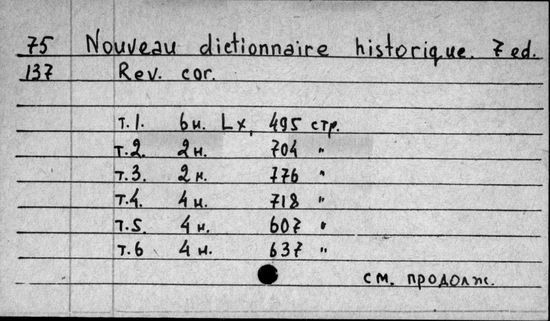 75 Nouveau dictionnaire historique. 7 ed.
137 Rev. cor.
т.1. 6н. Lx, 495 стр.
т.2. 2н. 704 "
т.3. 2н. 776 "
т.4. 4н. 718 "
т.5. 4н. 607 "
т.6 4н. 637 "
см. продолж.